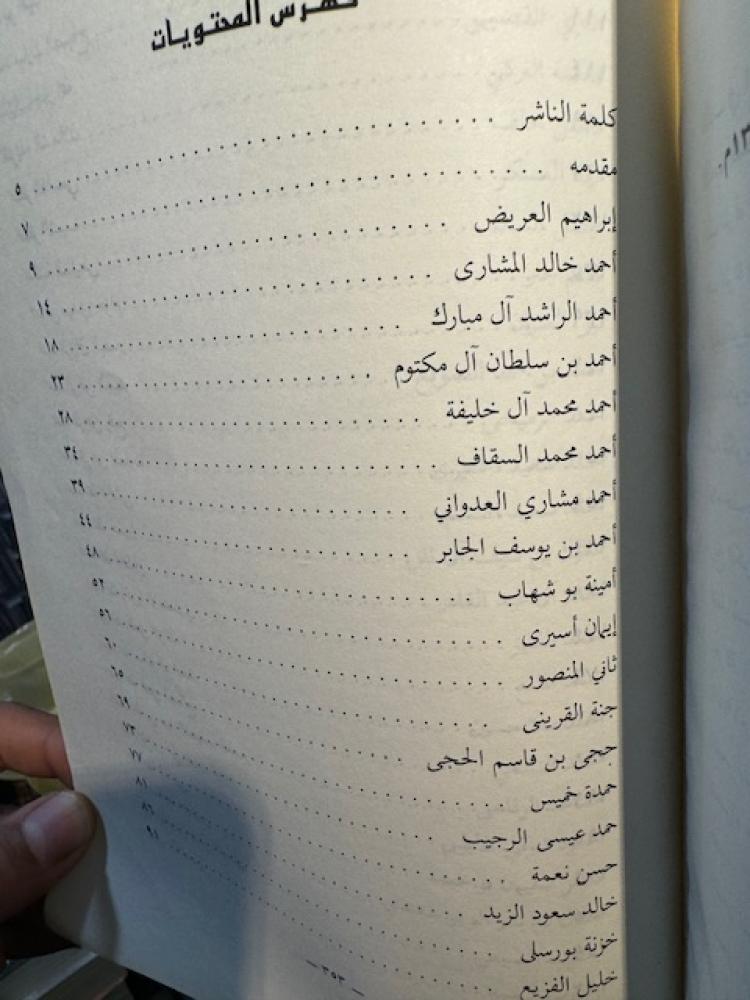 فهرس المحتويات
كلمة الناشر ........ ٥
مقدمه ........ ٧
إبراهيم العريض ........ ٩
أحمد خالد المشارى ........ ١٤
أحمد الراشد آل مبارك ........ ١٨
أحمد بن سلطان آل مكتوم ........ ٢٣
أحمد محمد آل خليفة ........ ٢٨
أحمد محمد السقاف ........ ٣٤
أحمد مشاري العدواني ........ ٣٩
أحمد بن يوسف الجابر ........ ٤٤
أمينة بو شهاب ........ ٤٨
إيمان أسيرى ........ ٥٢
ثاني المنصور ........ ٥٦
جنة القرينى ........ ٦٠
حجى بن قاسم الحجى ........ ٦٥
حمدة خميس ........ ٦٩
حمد عيسى الرجيب ........ ٧٣
حسن نعمة ........ ٧٧
خالد سعود الزيد ........ ٨١
خزنة بورسلى ........ ٨٦
خليل الفزيع ........ ٩١
— ٣٥٣ —